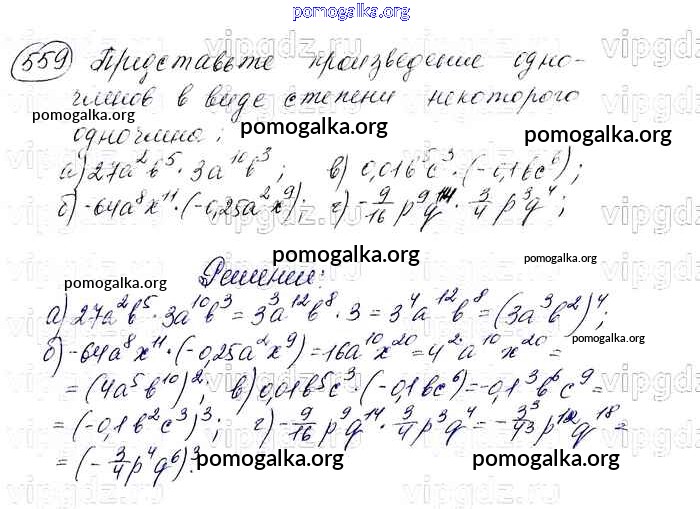 pomogalka.org
559 Представьте произведение одно-
членов в виде степени некоторого
pomogalka.org
одночлена:
pomogalka.org
pomogalka.org
а) 27a²b⁵ · 3a¹⁰b³; в) 0,01b⁵c³ · (-0,1bc⁶);
б) -64a⁸x¹¹ · (-0,25a²x⁹); г) -9/16 p⁹q¹⁴ · 3/4 p³q⁴;
pomogalka.org
pomogalka.org
Решение:
pomogalka.org
а) 27a²b⁵ · 3a¹⁰b³ = 3³a¹²b⁸ · 3 = 3⁴a¹²b⁸ = (3a³b²)⁴;
б) -64a⁸x¹¹ · (-0,25a²x⁹) = 16a¹⁰x²⁰ = 4²a¹⁰x²⁰ =
= (4a⁵b¹⁰)²; в) 0,01b⁵c³ · (-0,1bc⁶) = -0,1³b⁶c⁹ =
= (-0,1b²c³)³; г) -9/16 p⁹q¹⁴ · 3/4 p³q⁴ = -3³/4³ p¹²q¹⁸ =
= (-3/4 p⁴q⁶)³.
pomogalka.org
pomogalka.org
vipgdz.ru